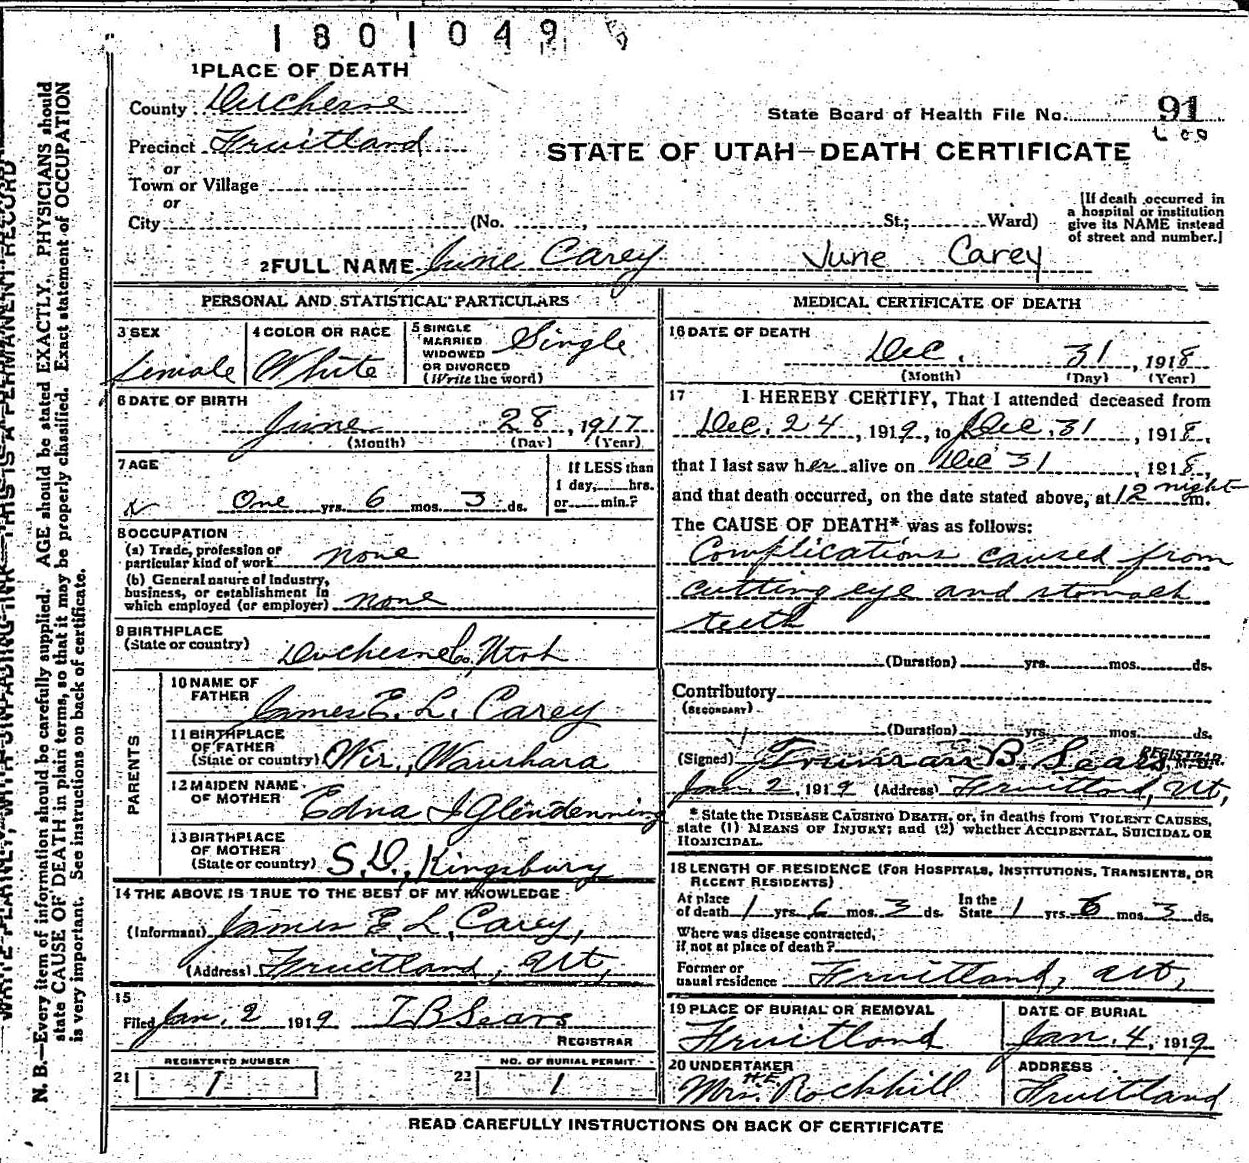 1801049
1 PLACE OF DEATH
County Duchesne
State Board of Health File No. 91
Precinct Fruitland
STATE OF UTAH—DEATH CERTIFICATE
or
Town or Village
or
City (No. , St.; Ward)
[If death occurred in a hospital or institution give its NAME instead of street and number.]
2 FULL NAME June Carey June Carey
PERSONAL AND STATISTICAL PARTICULARS
3 SEX
Female
4 COLOR OR RACE
White
5 SINGLE
MARRIED
WIDOWED
OR DIVORCED
(Write the word)
Single
6 DATE OF BIRTH
June 28, 1917
(Month) (Day) (Year)
7 AGE
One yrs. 6 mos. 3 ds.
If LESS than
1 day, hrs.
or min.?
8 OCCUPATION
(a) Trade, profession or
particular kind of work none
(b) General nature of Industry,
business, or establishment in
which employed (or employer) none
9 BIRTHPLACE
(State or country) Duchesne Co, Utah
PARENTS
10 NAME OF
FATHER James E. L. Carey
11 BIRTHPLACE
OF FATHER
(State or country) Wis., Waushara
12 MAIDEN NAME
OF MOTHER Edna I Glendenning
13 BIRTHPLACE
OF MOTHER
(State or country) S.D., Kingsbury
14 THE ABOVE IS TRUE TO THE BEST OF MY KNOWLEDGE
(Informant) James E. L. Carey,
(Address) Fruitland, Ut,
15
Filed Jan. 2 1919 T B Sears
REGISTRAR
REGISTERED NUMBER
21 1
NO. OF BURIAL PERMIT
22 1
MEDICAL CERTIFICATE OF DEATH
16 DATE OF DEATH
Dec. 31, 1918
(Month) (Day) (Year)
17 I HEREBY CERTIFY, That I attended deceased from
Dec. 24, 1919, to Dec. 31, 1918,
that I last saw her alive on Dec 31, 1918,
and that death occurred, on the date stated above, at 12 night m.
The CAUSE OF DEATH* was as follows:
Complications caused from
cutting eye and stomach
teeth
(Duration) yrs. mos. ds.
Contributory
(SECONDARY)
(Duration) yrs. mos. ds.
(Signed) Truman B. Sears REGISTRAR.
Jan. 2, 1919 (Address) Fruitland, Ut,
* State the DISEASE CAUSING DEATH, or, in deaths from VIOLENT CAUSES,
state (1) MEANS OF INJURY; and (2) whether ACCIDENTAL, SUICIDAL OR
HOMICIDAL.
18 LENGTH OF RESIDENCE (FOR HOSPITALS, INSTITUTIONS, TRANSIENTS, OR
RECENT RESIDENTS)
At place
of death 1 yrs. 6 mos. 3 ds. In the State 1 yrs. 6 mos. 3 ds.
Where was disease contracted,
if not at place of death?
Former or
usual residence Fruitland, Ut,
19 PLACE OF BURIAL OR REMOVAL
Fruitland
DATE OF BURIAL
Jan. 4, 1919
20 UNDERTAKER
Mrs. H.E. Rockhill
ADDRESS
Fruitland
READ CAREFULLY INSTRUCTIONS ON BACK OF CERTIFICATE
WRITE PLAINLY, WITH UNFADING INK—THIS IS A PERMANENT RECORD
N. B.—Every item of information should be carefully supplied. AGE should be stated EXACTLY. PHYSICIANS should
state CAUSE OF DEATH in plain terms, so that it may be properly classified. Exact statement of OCCUPATION
is very important. See instructions on back of certificate.